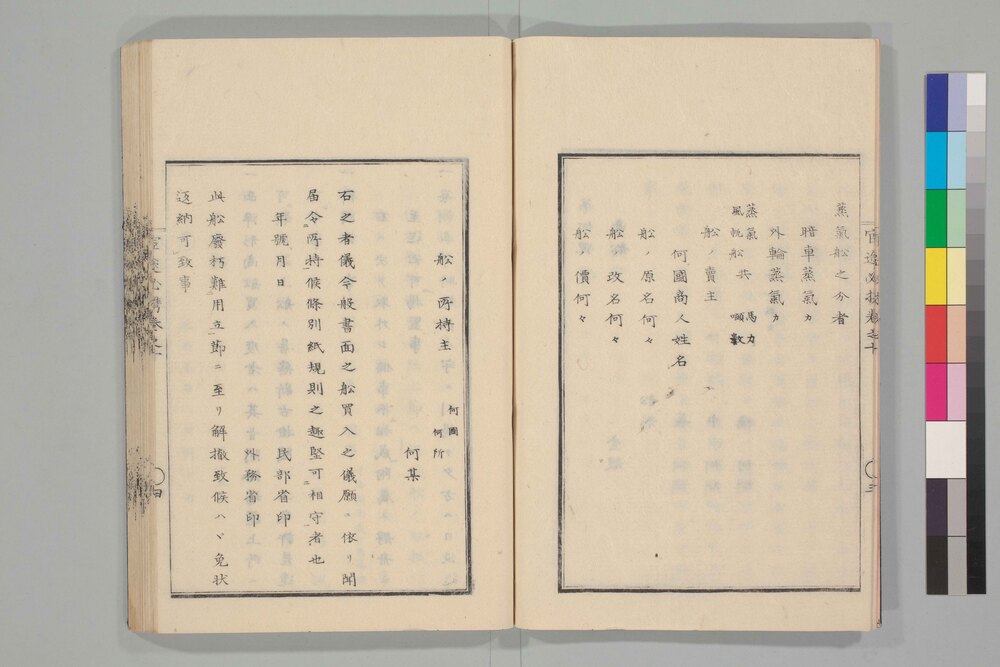 蒸氣舩之分者
暗車蒸氣カ
外輪蒸氣カ
蒸氣
風帆舩共
馬力
噸数
舩ノ賣主
何國商人姓名
舩ノ原名何々
舩ノ改名何々
舩ノ價何々
三
舩ノ所持主
何國
何所
何某
右之者儀今般書面之舩買入之儀願ニ依リ聞
届令所持候條別紙規則之趣堅可相守者也
年號月日
民部省印
外務省印
此舩廢朽難用立節ニ至リ解撤致候ハヾ免状
返納可致事
四